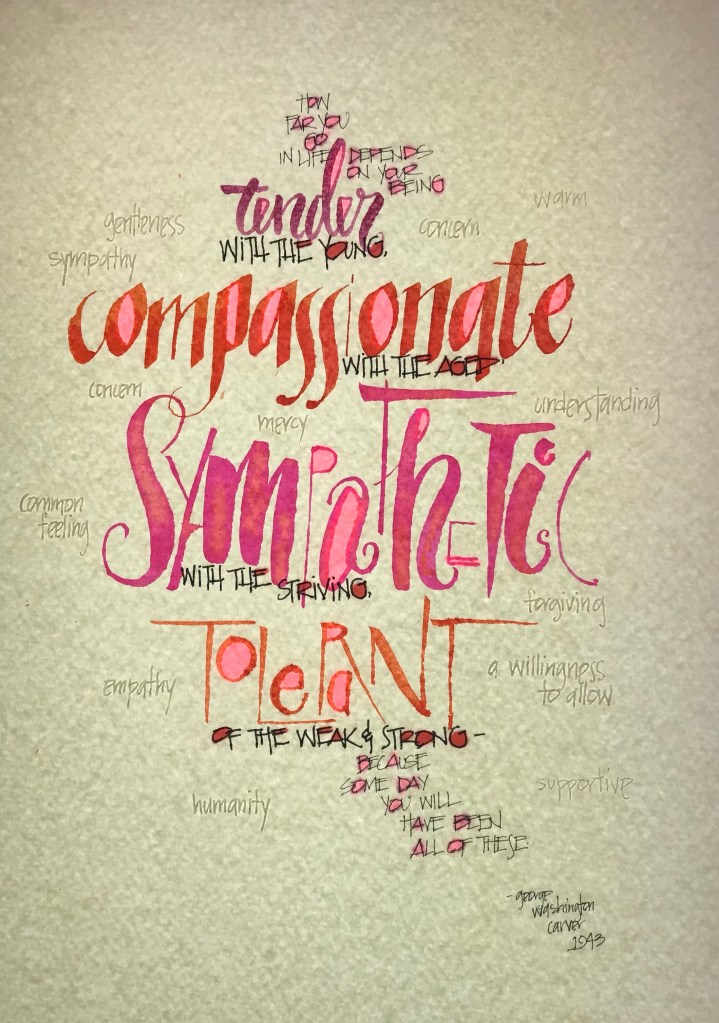 HOW
FAR YOU
GO
IN LIFE DEPENDS
ON YOUR
BEING
tender
warm
gentleness
concern
WITH THE YOUNG,
sympathy
compassionate
WITH THE AGED,
concern
mercy
understanding
SYMPATHETIC
common
feeling
WITH THE STRIVING,
forgiving
TOLERANT
empathy
a willingness
to allow
OF THE WEAK & STRONG –
BECAUSE
SOME DAY
YOU WILL
HAVE BEEN
ALL OF THESE.
humanity
supportive
- george
washington
carver
1943